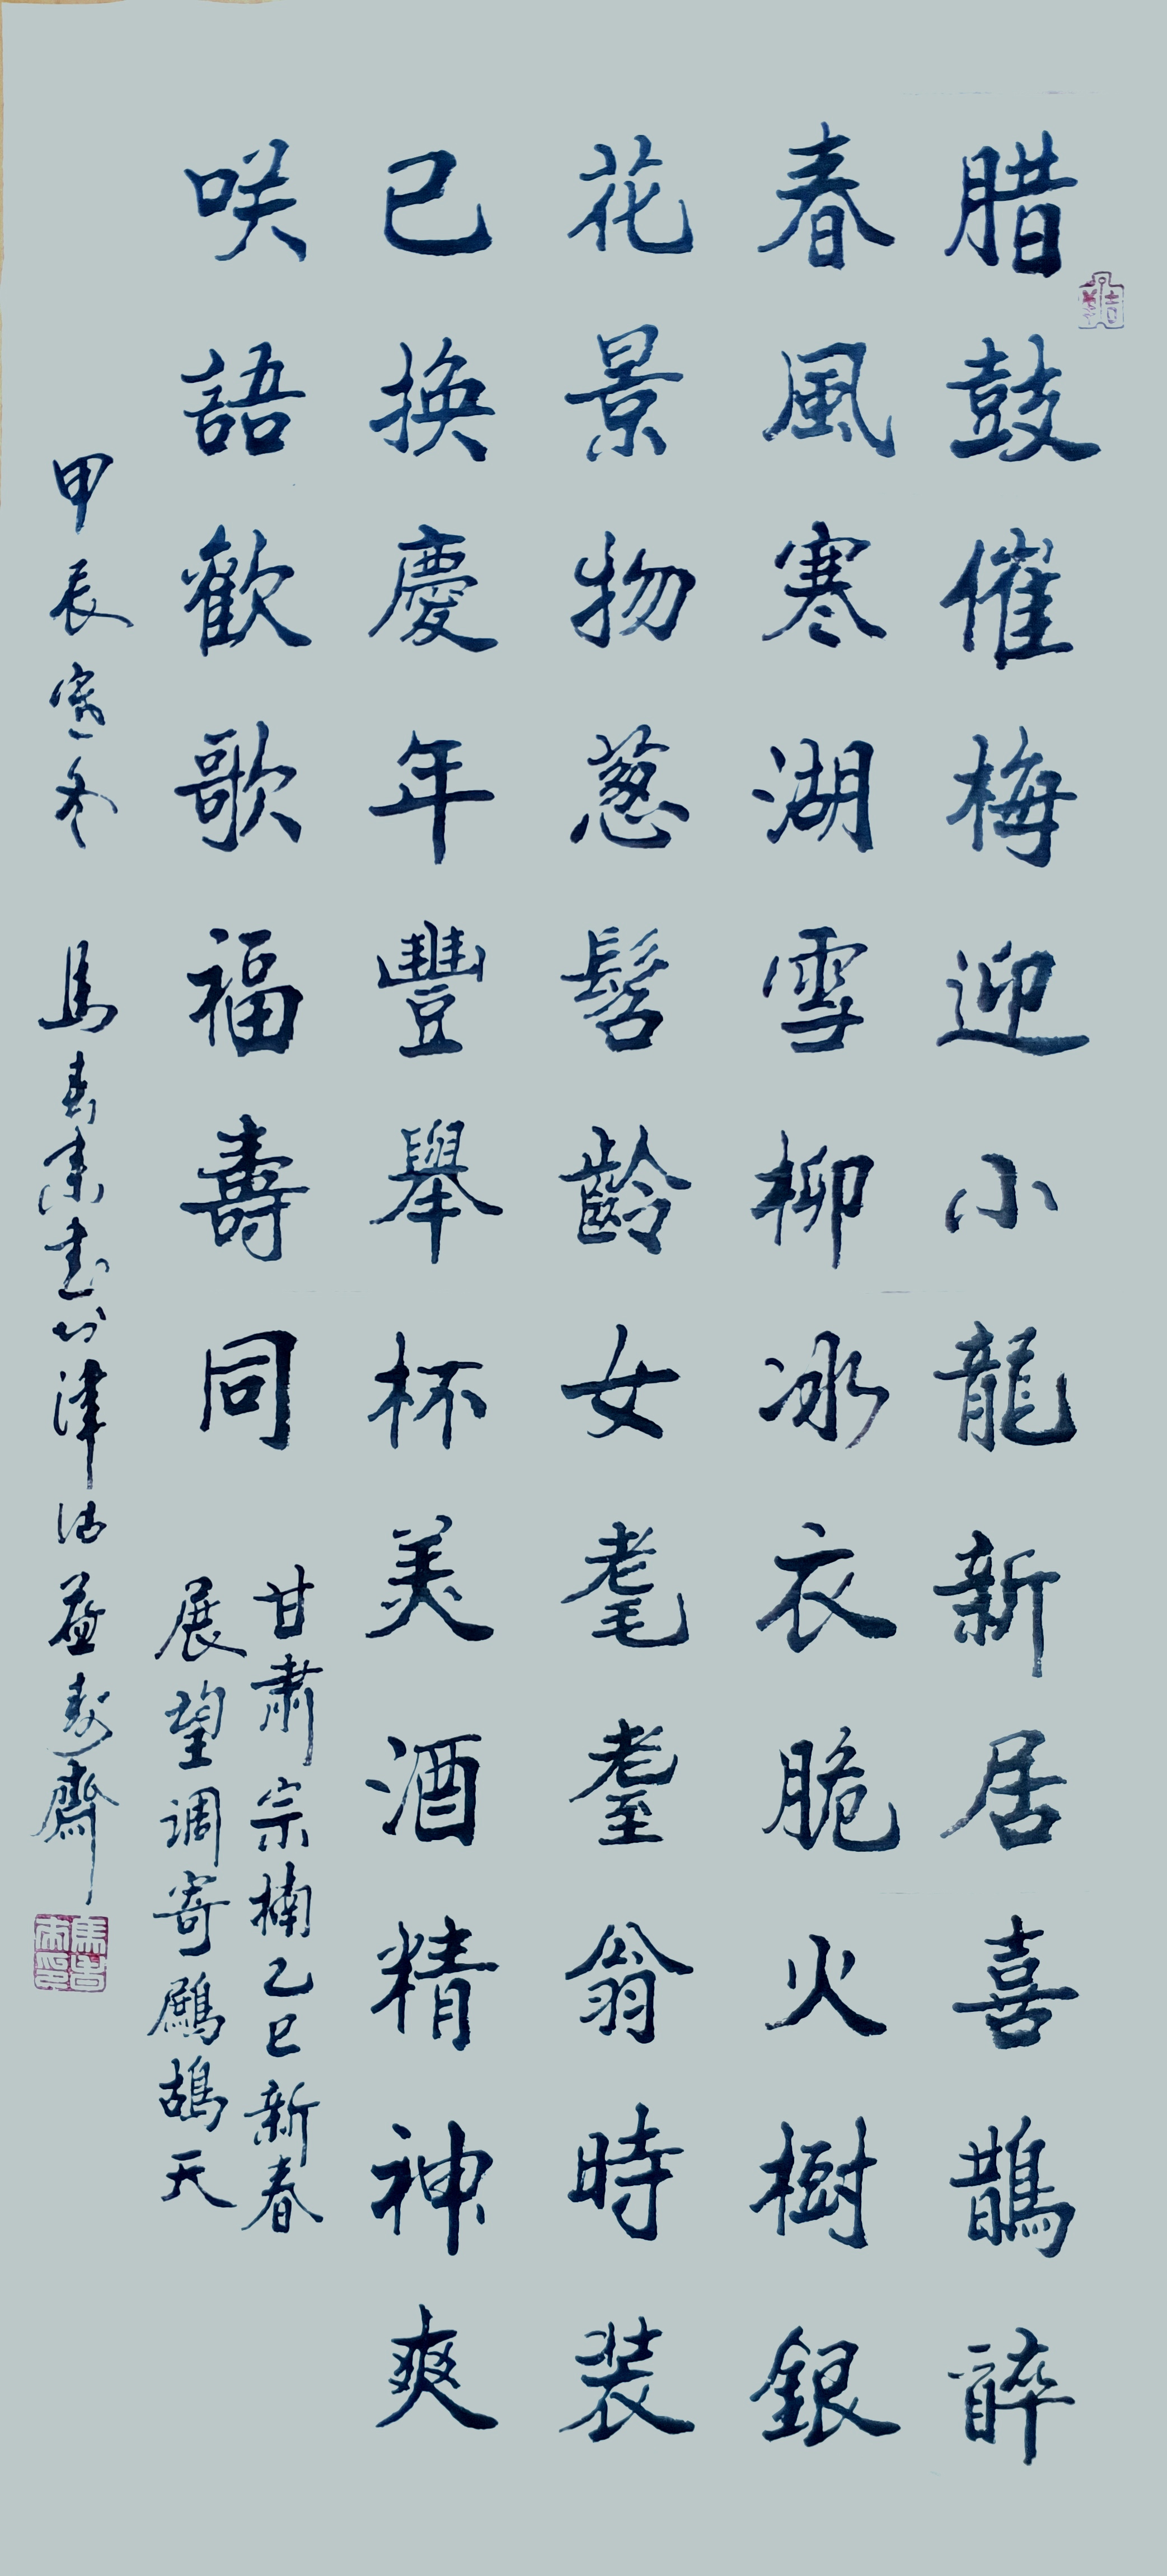 腊鼓催梅迎小龍新居喜鵲醉
春風寒湖雪柳冰衣脆火樹銀
花景物葱髫齡女耄耋翁時裝
已換慶年豐舉杯美酒精神爽
咲語歡歌福壽同
甘肅宗楠乙巳新春
展望调寄鷓鴣天
甲辰寒冬
馬書束書於津沽益壽齋